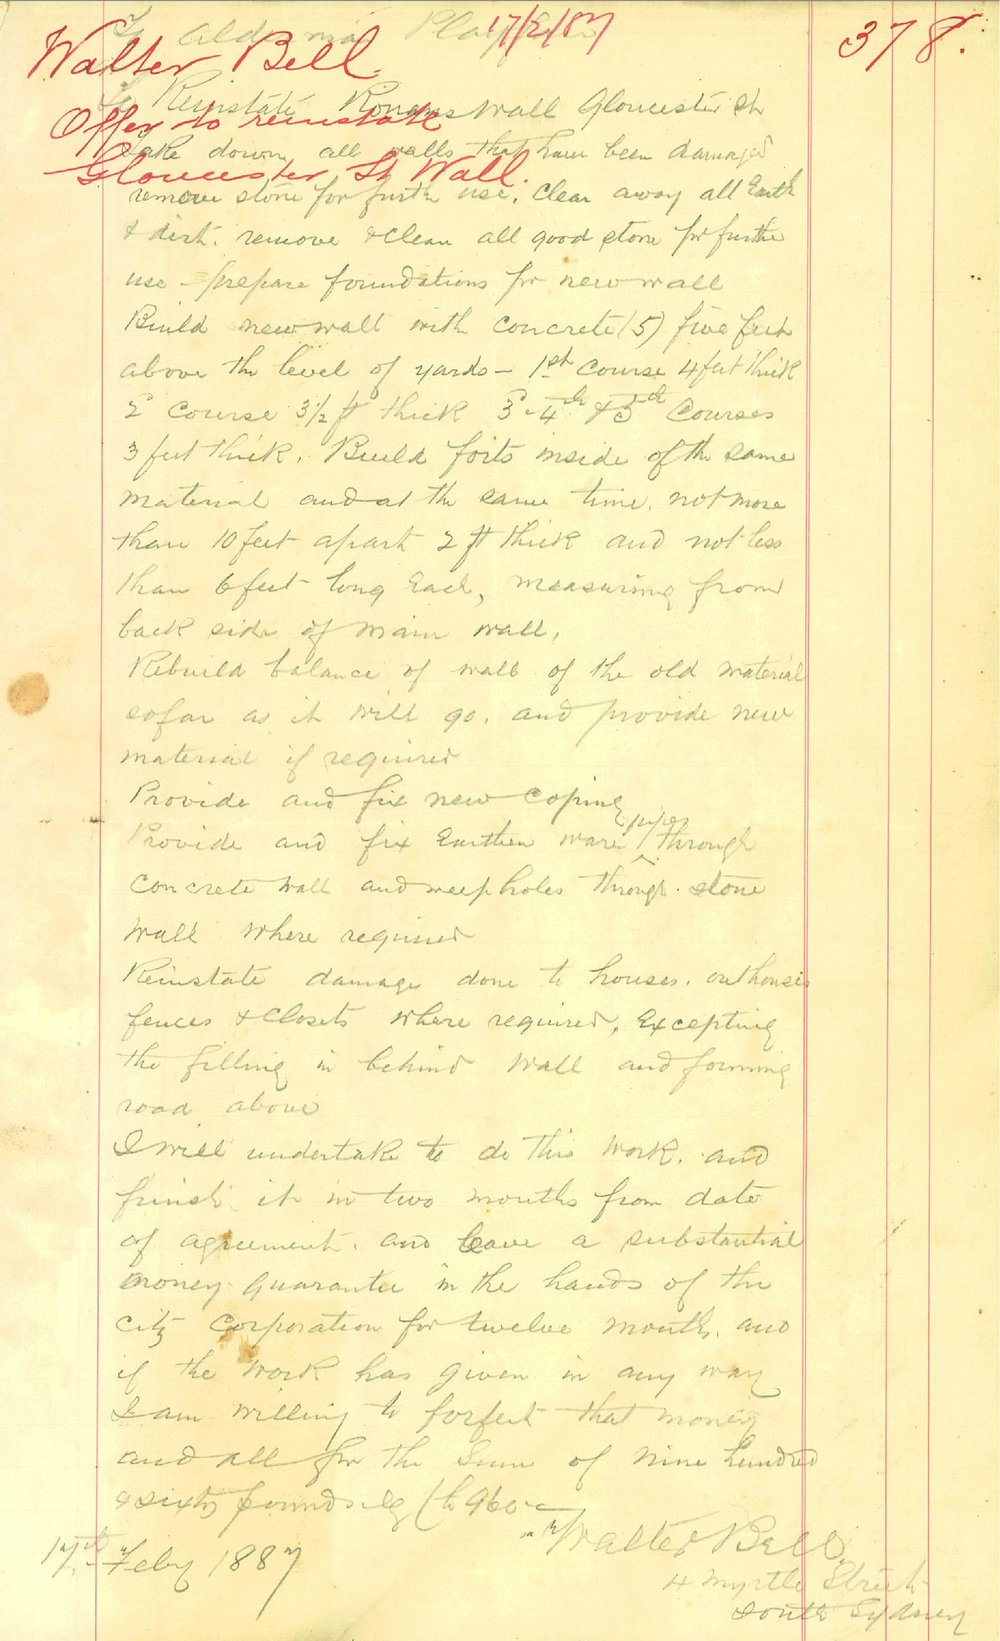 To Alderman Playfair
17/2/87
378.
Walter Bell
To Reinstate Romans Wall Gloucester St
Offer to reinstate
Take down all walls that have been damaged
Gloucester St Wall.
remove stone for furthr use. Clear away all Earth
& dirt. remove & clean all good stone for further
use – prepare foundations for new wall
Build new wall with concrete (5) five feet
above the level of yards – 1st course 4 feet thick
2d course 3½ ft thick 3d 4th & 5th courses
3 feet thick. Build forts inside of the same
material and at the same time. not more
than 10 feet apart 2 ft thick and not less
than 6 feet long Each, measuring from
back side of main wall.
Rebuild balance of wall of the old material
so far as it will go. and provide new
material if required
Provide and fix new coping
Provide and fix Earthen ware pipes through
concrete wall and weep holes through stone
wall where required
Reinstate damage done to houses. outhouses
fences & closets where required. Excepting
the filling in behind wall and forming
road above
I will undertake to do this work. and
finish it in two months from date
of agreement. and leave a substantial
money guarantee in the hands of the
City Corporation for twelve months. and
if the work has given in any way
I am willing to forfeit that money
and all for the Sum of nine hundred
& sixty pounds
Walter Bell
17th Feby 1887
4 Myrtle Street
South Sydney